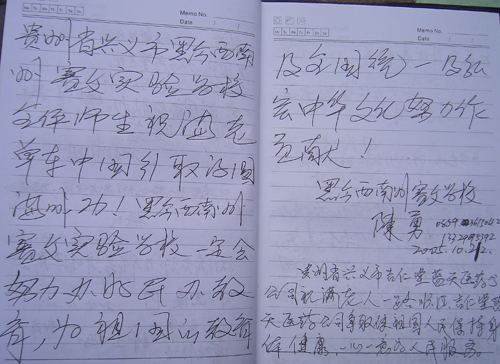 Memo No.
Date
贵州省兴义市黔西南
州赛文实验学校
全体师生祝满老
单车中国行取得圆
满成功！黔西南州
赛文实验学校一定会
努力办好民办教
育，为祖国的教育
Memo No.
Date
及全国统一及弘
宏中华文化努力作
贡献！
黔西南州赛文学校
陳勇
2005.10.2
贵州省兴义市吉仁堂蓝天医药
公司祝满老人一路顺风吉仁堂蓝
天医药公司争取使祖国人民保持身
体健康一心一意为人民服务